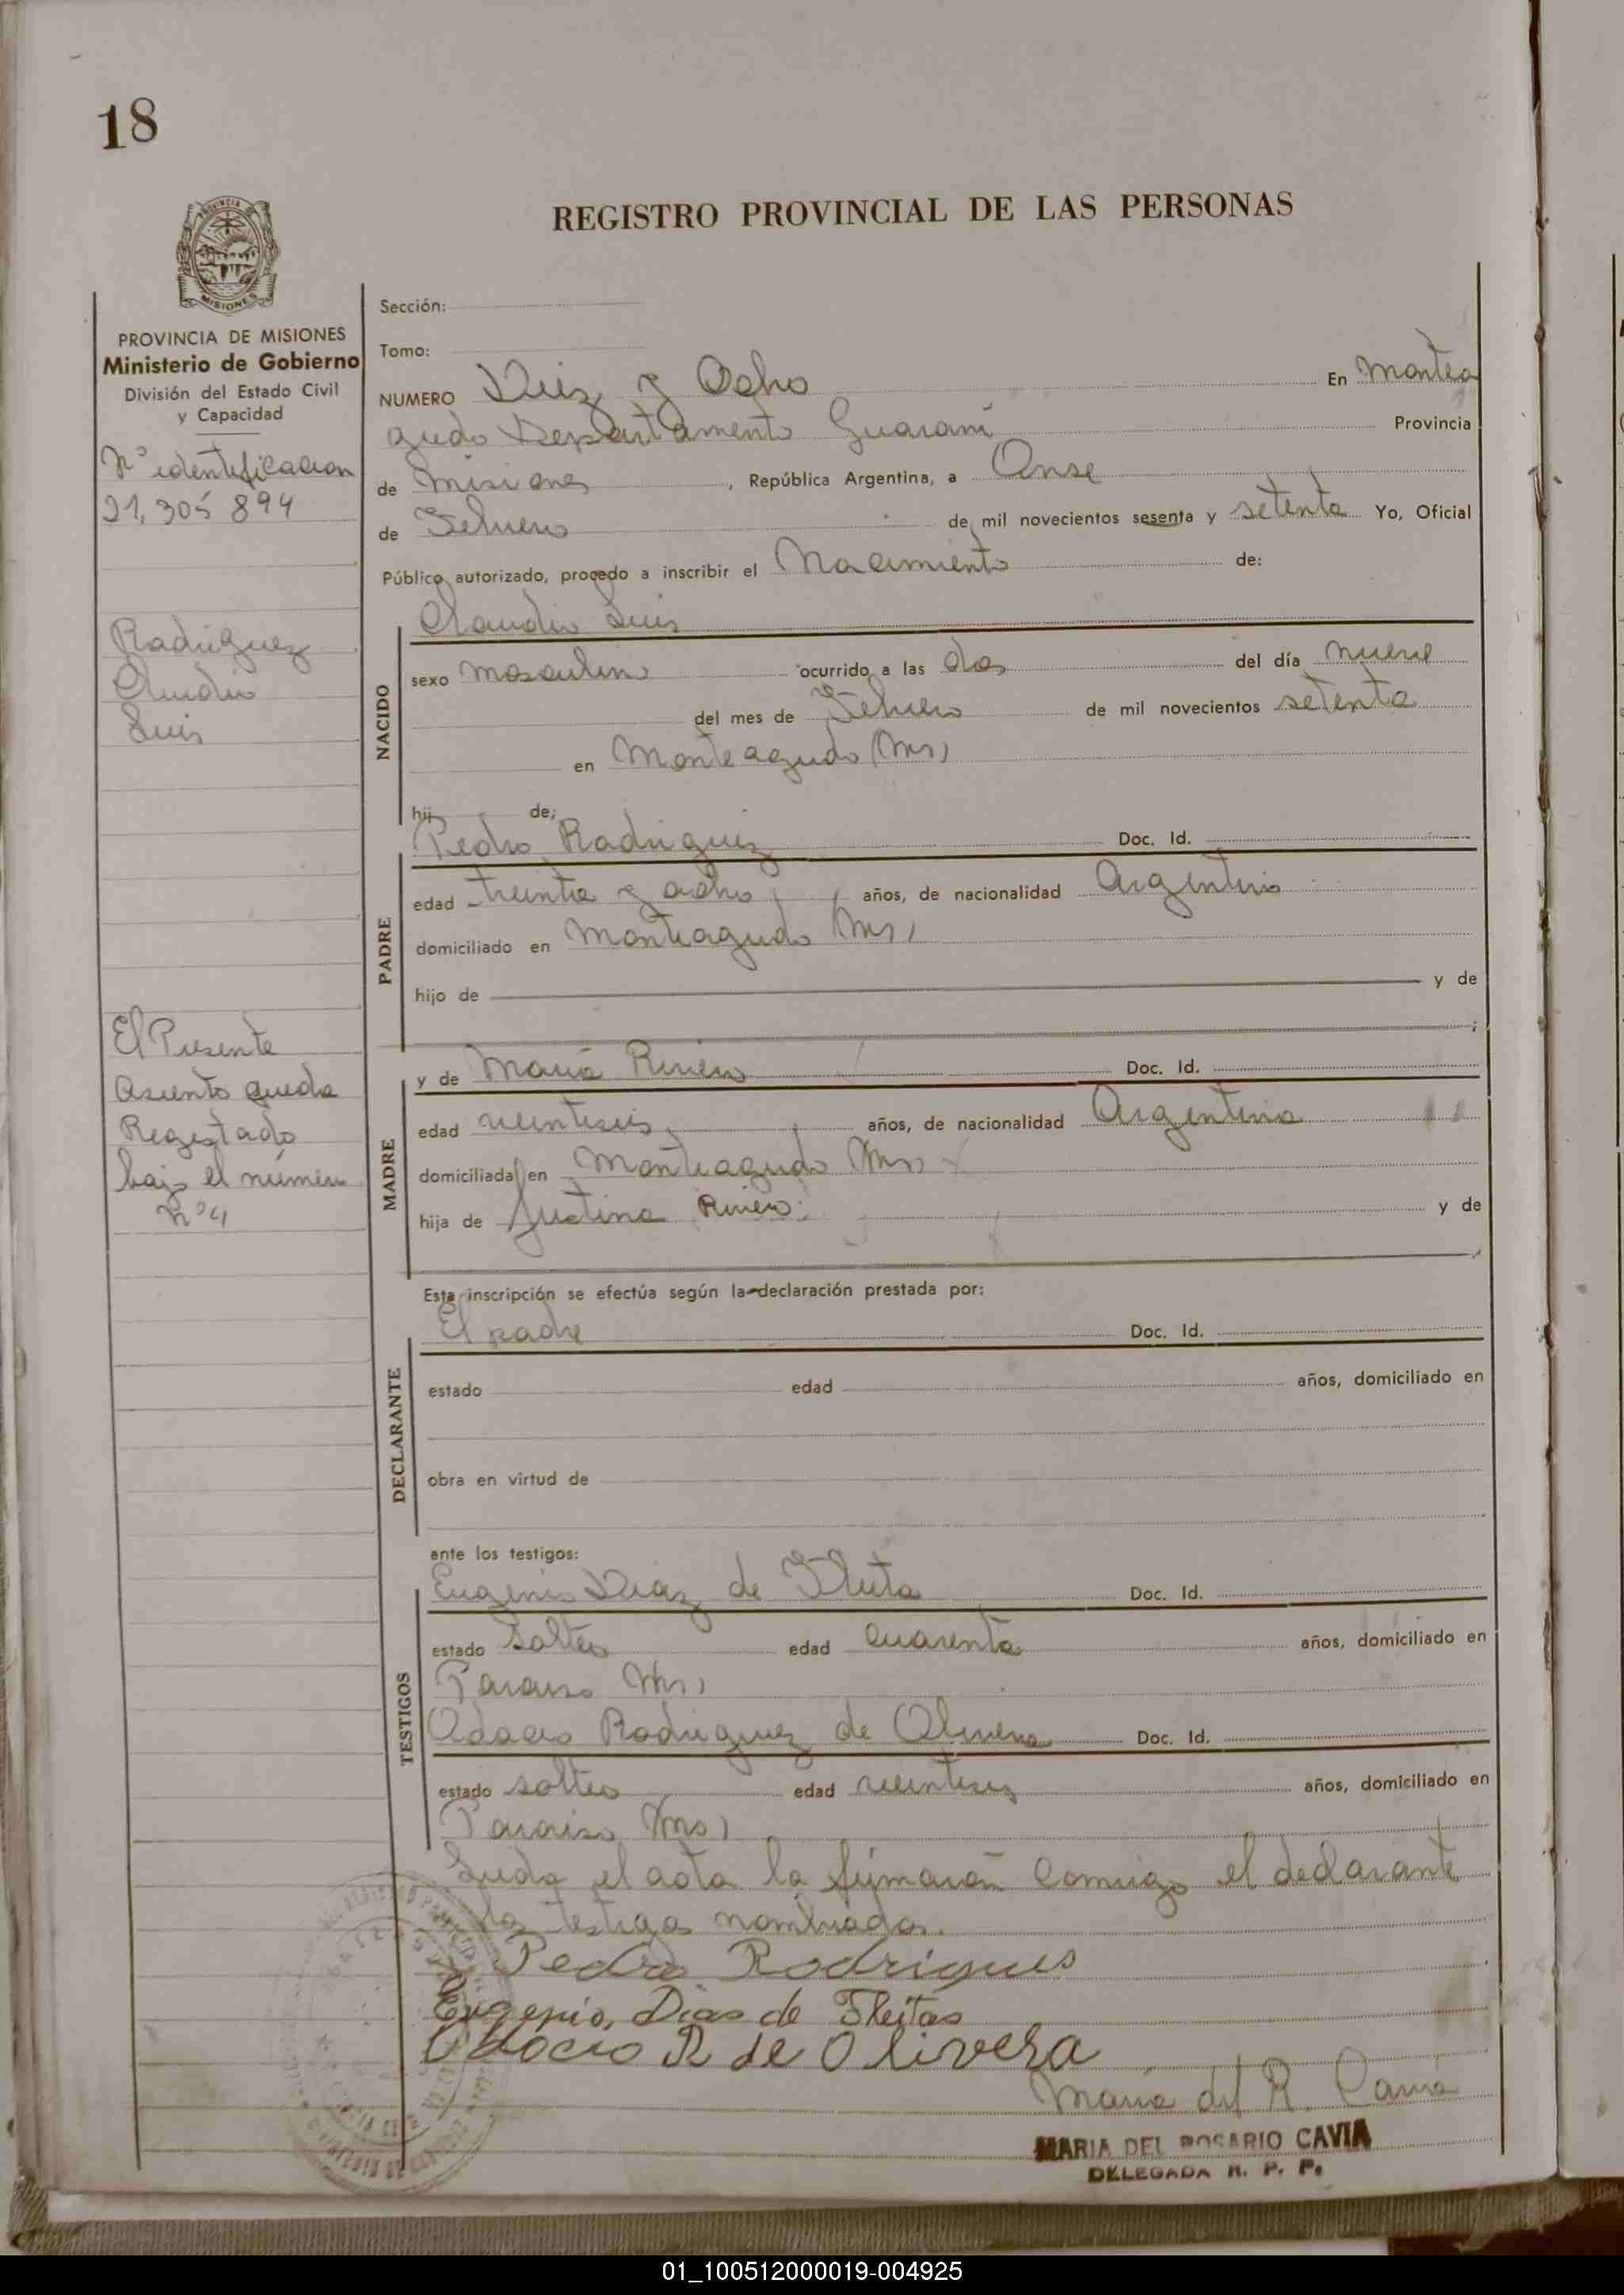 18
REGISTRO PROVINCIAL DE LAS PERSONAS
MISIONES
PROVINCIA DE MISIONES
Ministerio de Gobierno
División del Estado Civil
y Capacidad
Nº identificacion
21,305 894
Rodriguez
Claudio
Luis
El Presente
Asiento queda
Registado
bajo el número
Nº 4
Sección:
Tomo:
NUMERO Diez y Ocho En Montea
gudo Departamento Guaraní Provincia
de Misiones, República Argentina, a Onse
de Febrero de mil novecientos sesenta y setenta Yo, Oficial
Público autorizado, procedo a inscribir el Nacimiento de:
Claudio Luis
NACIDO
sexo masculino ocurrido a las dos del día nueve
del mes de Febrero de mil novecientos setenta
en Monteagudo (Ms)
hij de;
Pedro Rodriguez Doc. Id.
PADRE
edad treinta y ocho años, de nacionalidad Argentino
domiciliado en Monteagudo Ms)
hijo de y de
;
y de María Rivero Doc. Id.
MADRE
edad veintiseis años, de nacionalidad Argentina
domiciliada en Monteagudo Ms)
hija de Justina Rivero; y de
Esta inscripción se efectúa según la declaración prestada por:
El padre Doc. Id.
DECLARANTE
estado edad años, domiciliado en
obra en virtud de
ante los testigos:
Eugenio Diaz de Fleita Doc. Id.
TESTIGOS
estado Soltero edad cuarenta años, domiciliado en
Paraiso Ms)
Odocio Rodriguez de Olivera Doc. Id.
estado soltero edad años, domiciliado en
Paraiso Ms)
el acta la firmaron Comigo el declarante
los testigos nombrados.
Pedro Rodrigues
Eugenio, Dias de Fleitas
Odocio R de Olivera
María del R. Cavia
MARIA DEL ROSARIO CAVIA
DELEGADA R. P. P.
01_100512000019-004925